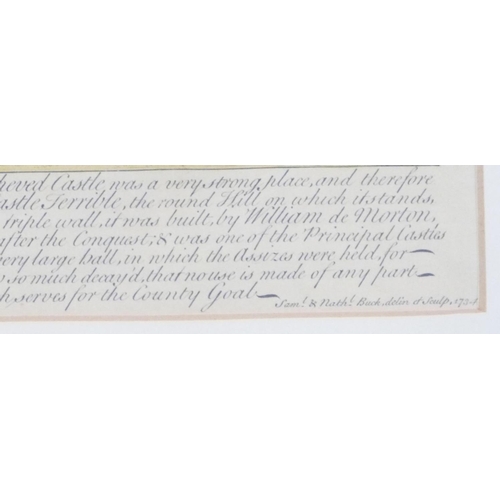 heved Castle, was a very strong place, and therefore
astle Terrible, the round Hill on which it stands,
triple wall, it was built, by William de Morton,
after the Conquest; & was one of the Principal Castles
very large hall, in which the Assizes were held, for
so much decay'd, that no use is made of any part
h serves for the County Goal
Sam.l & Nath.l Buck delin et Sculp.